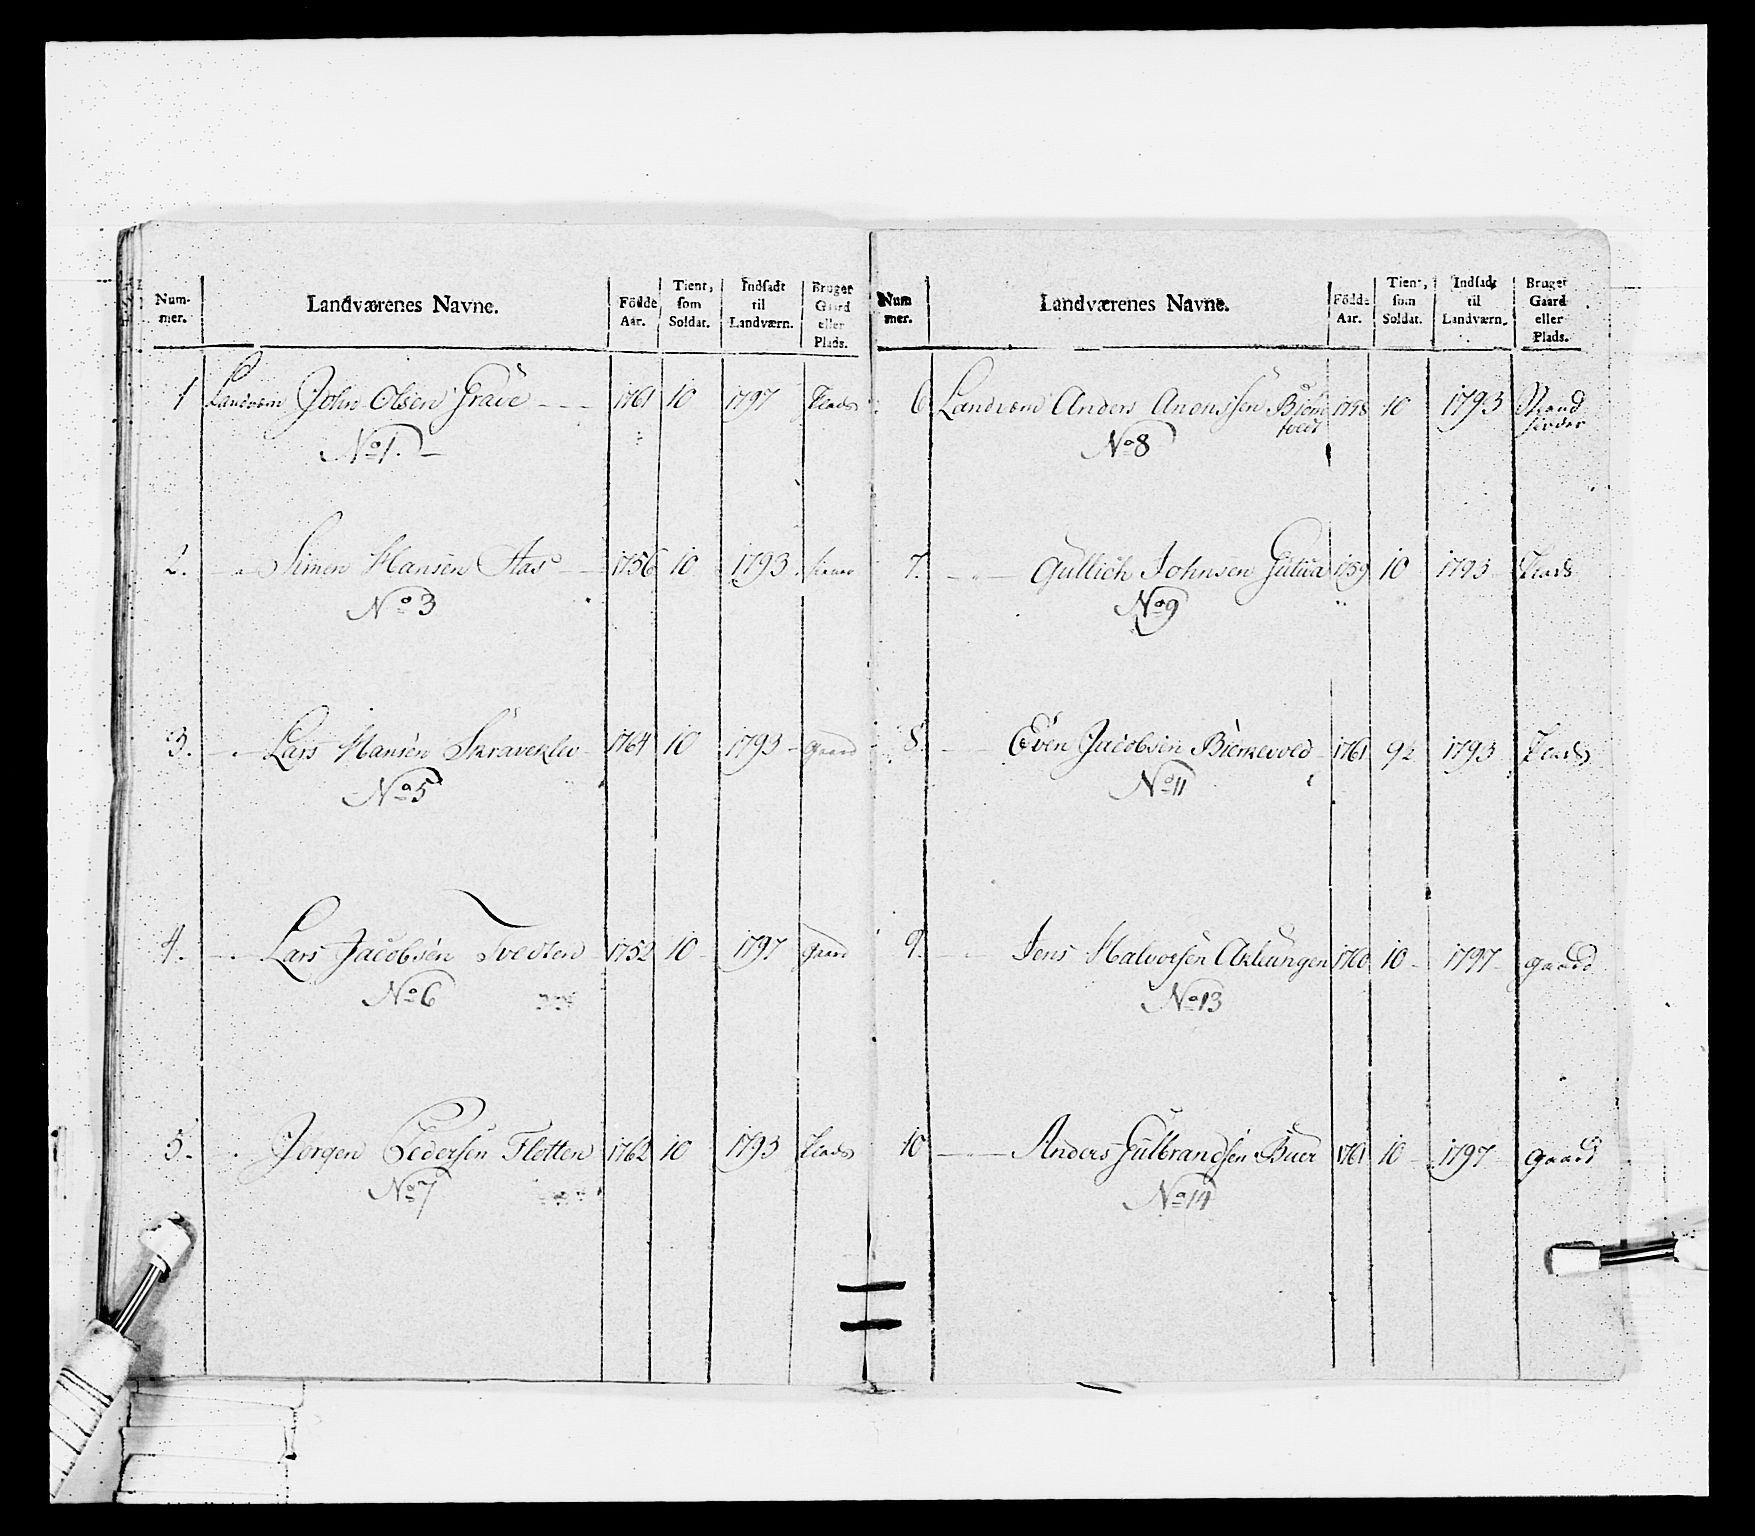 Num-
mer.
Landværenes Navne.
Födde
Aar.
Tient,
som
Soldat.
Indsadt
til
Landværn.
Bruger
Gaard
eller
Plads.
1 Landværn John Olsen Grave 1761 10 1797 Plads
No 1.
2. Simen Hansen Aas 1756 10 1793
No 3
3. Lars Hansen Skraveklev 1764 10 1793 gaard
No 5
4. Lars Jacobsen Tvedten 1752 10 1797 gaard
No 6
5. Jørgen Pedersen Flotten 1762 10 1793 Plads
No 7
Num
mer.
Landværenes Navne.
Födde
Aar.
Tient,
som
Soldat.
Indsadt
til
Landværn.
Bruger
Gaard
eller
Plads.
6 Landværn Anders 1758 10 1793 Strand
sidder
No 8
7. Gullich Johnsen 1759 10 1793 Plads
No 9
8. Even Jacobsen Biørkevold 1761 92 1793 Plads
No 11
9. Jens Halvorsen Aklungen 1760 10 1797 gaard
No 13
10 Anders Gulbrandsen Buer 1761 10 1797 gaard
No 14